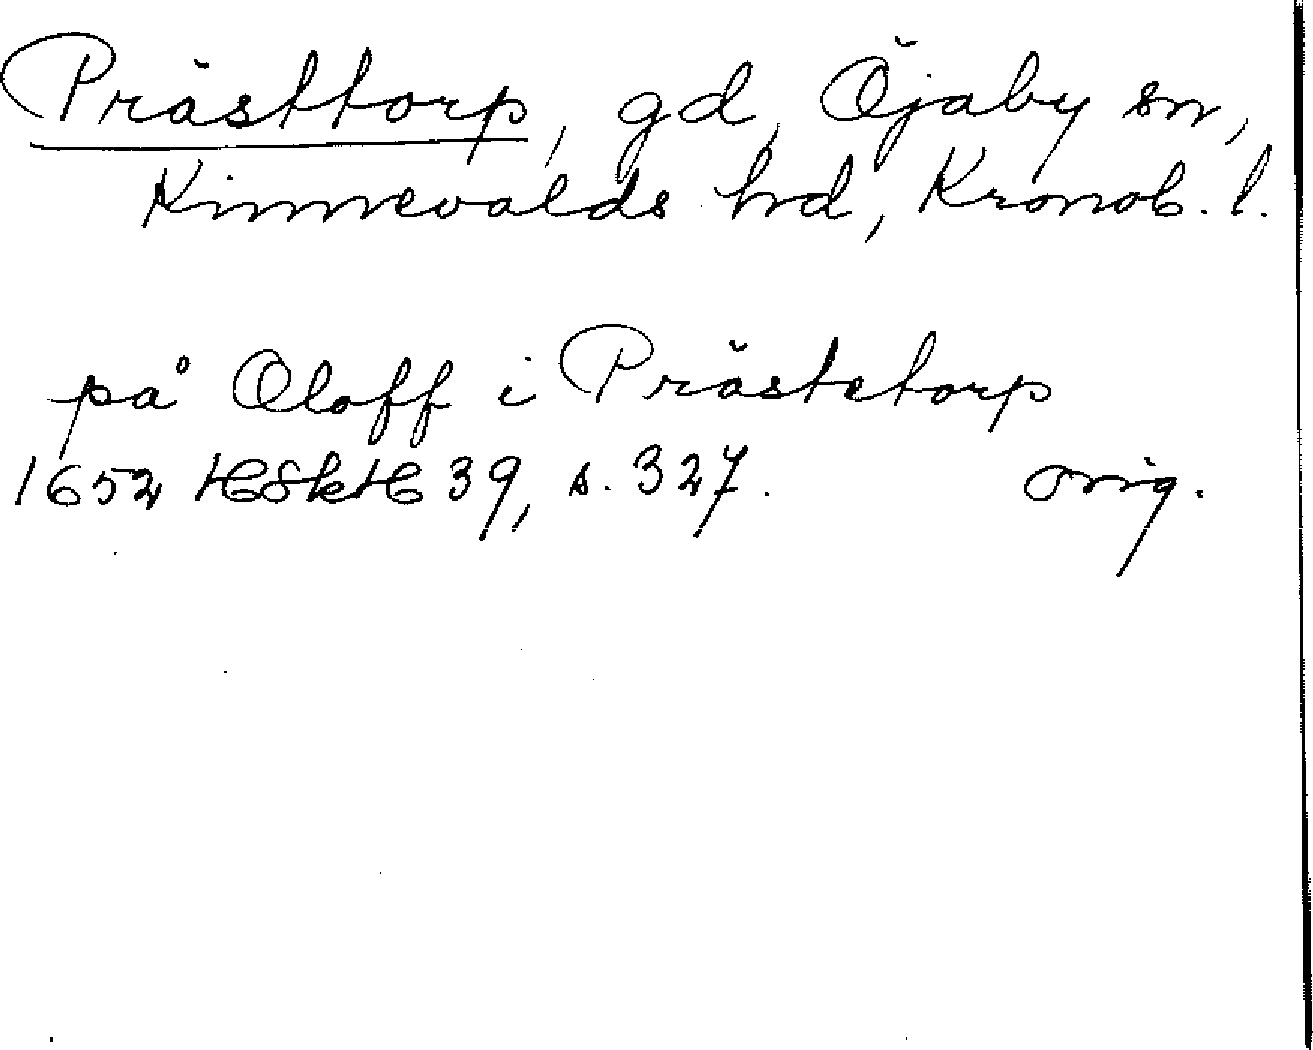 Prästtorp, gd, Öjaby sn,
Kinnevalds hd, Kronob. l.
på Oloff i Prästetorp
1652 HSkH 39, s. 327. orig.